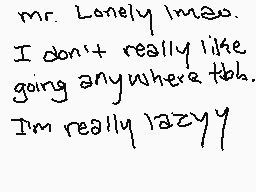 mr. Lonely lmao.
I don't really like
going anywhere tbh.
I'm really lazyy